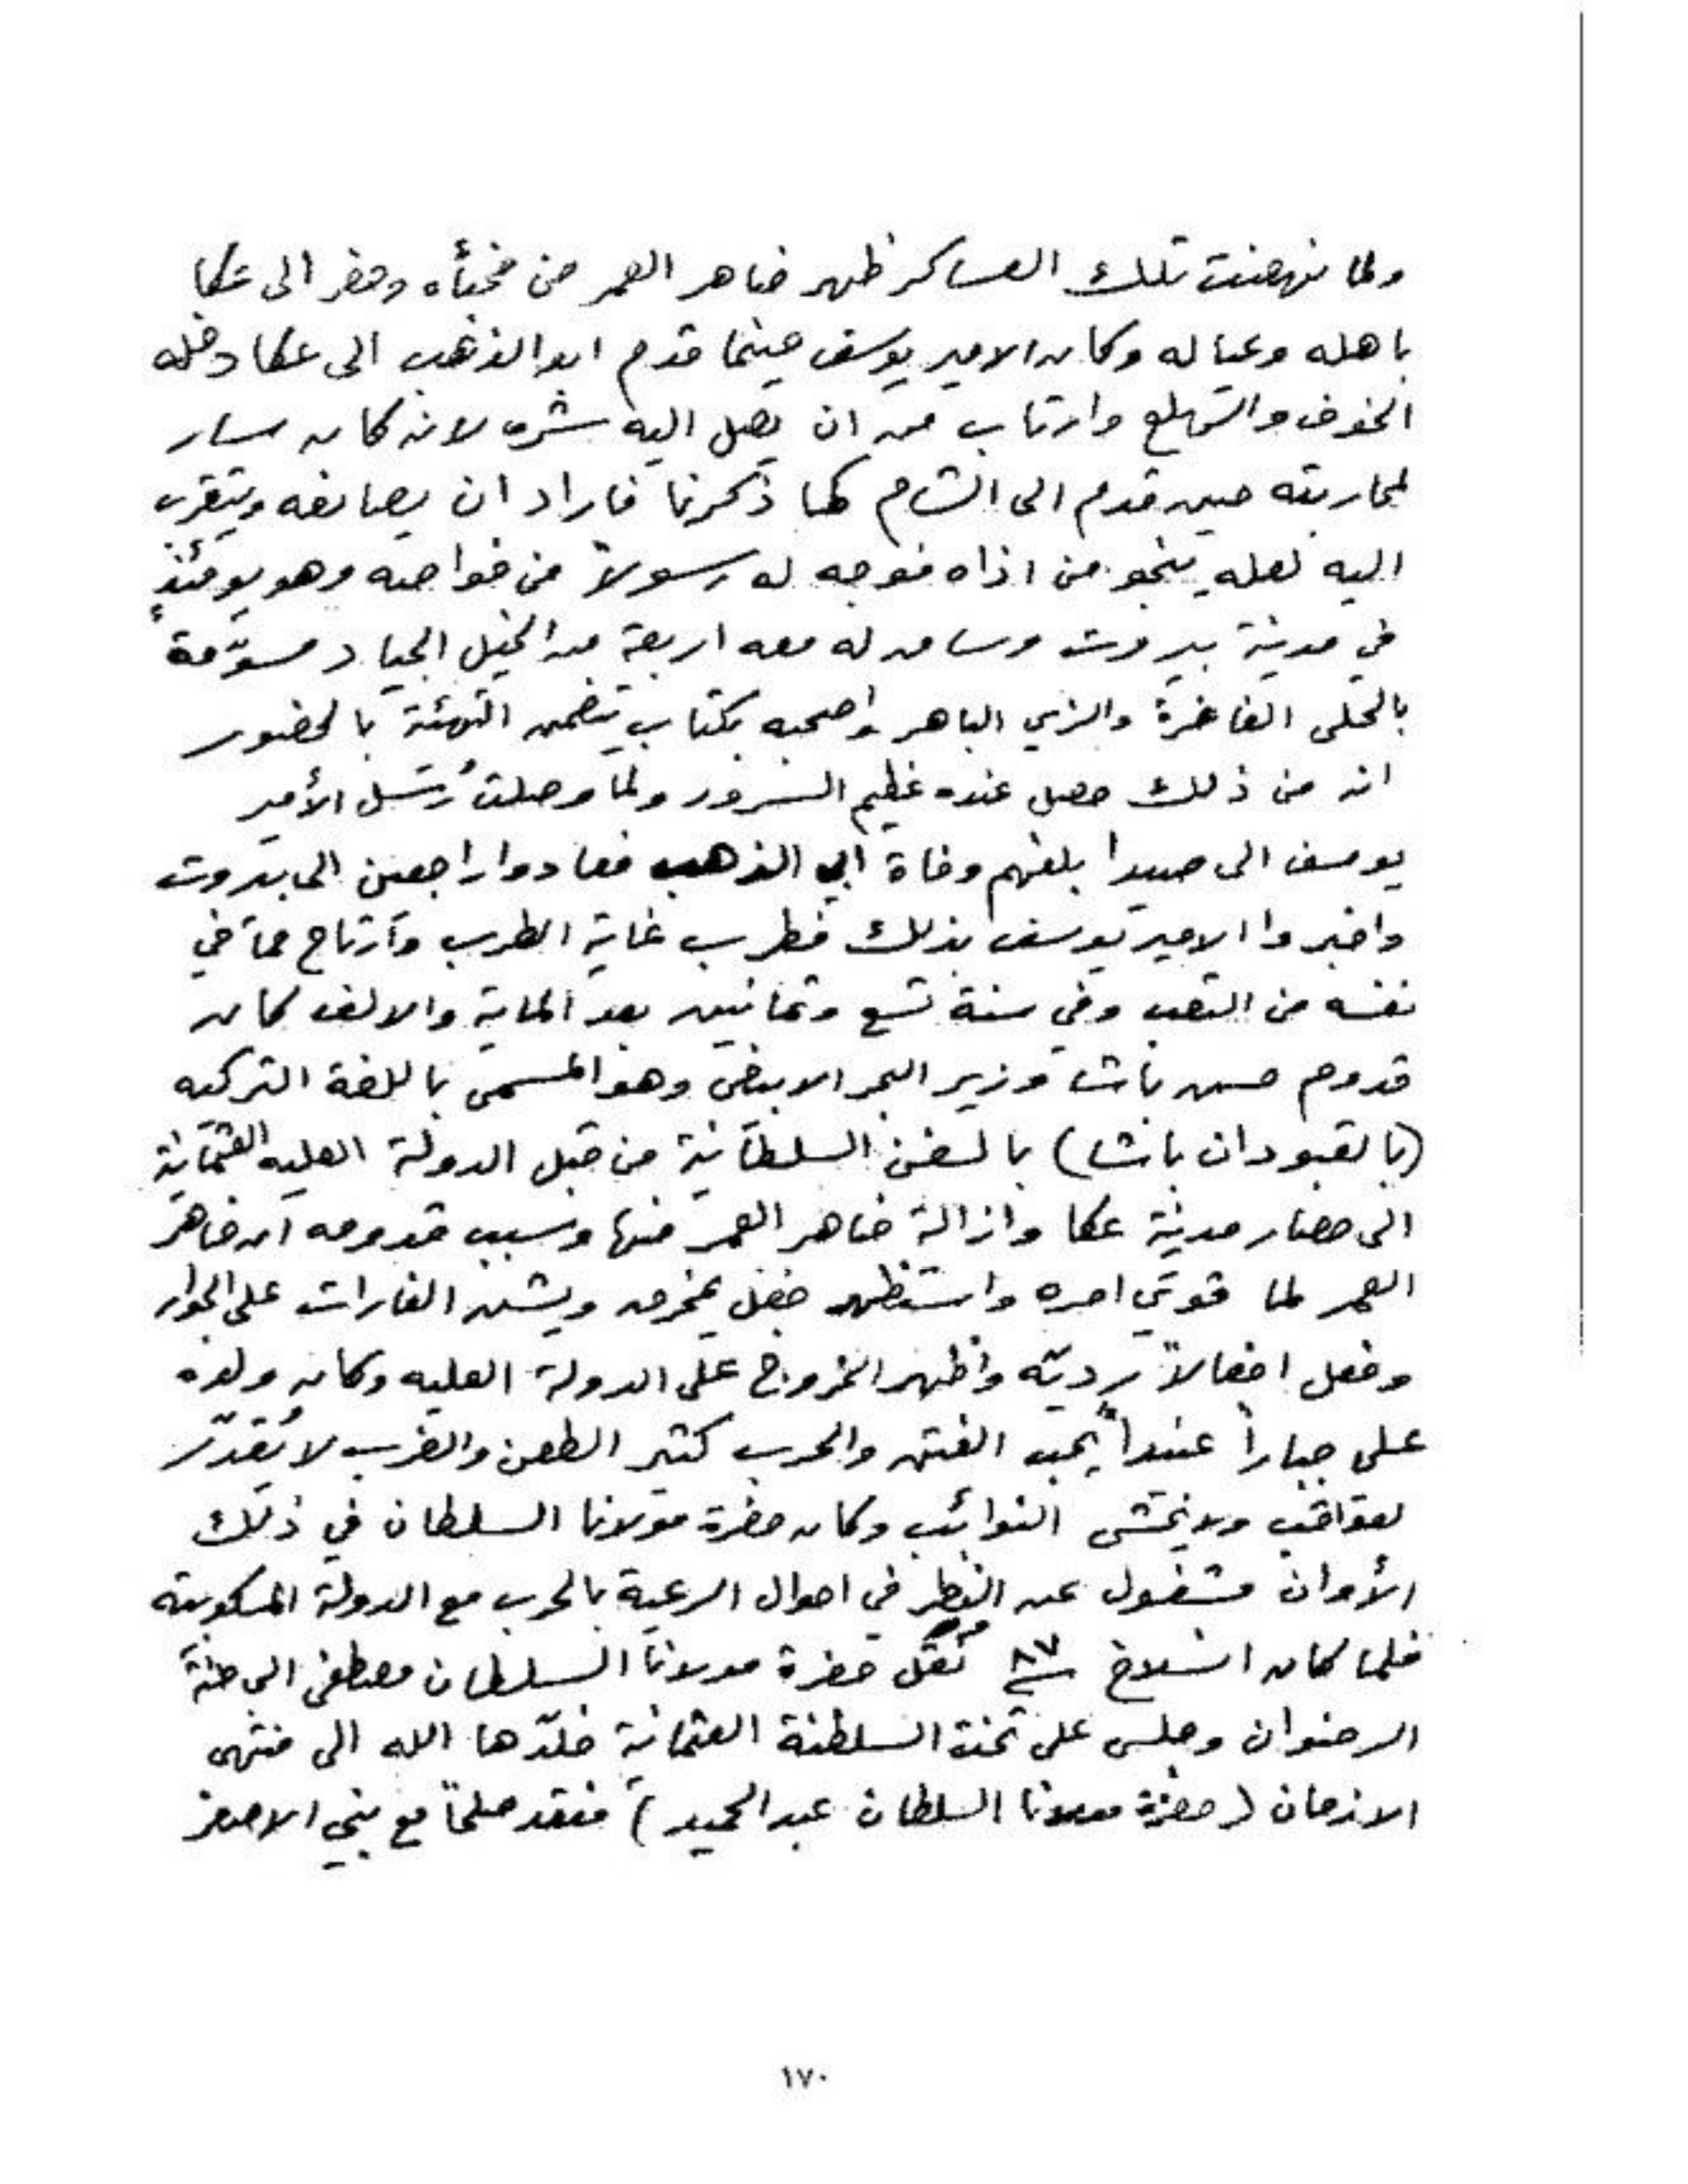 ولما نهضت تلك العساكر ظهر ضاهر العمر من مخبأه وحضر الى عكا
باهله وعياله وكان الامير يوسف حينما قدم ابو الذهب الى عكا دخله
الخوف والهلع وارتاب من ان يصل اليه شره لانه كان سار
لمحاربته حين قدم الى الشام كما ذكرنا فاراد ان يصانعه ويتقرب
اليه لعله ينجو من اذاه فوجه له رسولاً من خواصه وهو يومئذٍ
في مدينة بيروت وسا من له معه اربعة من الخيل الجياد مسوّمة
بالحلى الفاخرة والزي الباهر واصحبه بكتاب يتضمن التهنئة بالحضور
انه من ذلك حصل عنده عظيم السرور ولما وصلت رُسُل الأمير
يوسف الى صيدا بلغهم وفاة ابي الذهب فعادوا راجعين الى بيروت
واخبروا الامير يوسف بذلك فطرب غاية الطرب وارتاح مما في
نفسه من التعب وفي سنة تسع وثمانين بعد الماية والالف كان
قدوم حسن باشا وزير البحر الابيض وهو المسمى باللغة التركيه
(بالقبودان باشا) بالسفن السلطانية من قبل الدولة العليه العثمانية
الى حصار مدينة عكا وازالة ضاهر العمر منها وسبب قدومه ان ضاهر
العمر لما قوي امره واستظهر جعل يخرق ويشن الغارات على الجوار
وفعل افعالاً رديّه واظهر الخروج على الدولة العليه وكان ولده
علي جباراً عنيداً يحب الفتن والحرب كثير الطعن والضرب لا يُقدّر
لعواقب ولا يخشى النوائب وكان حضرة مولانا السلطان في ذلك
الأوان مشغول عن النظر في احوال الرعية بالحرب مع الدولة المسكوبيه
فلما كان انسلاخ سنة ٨٧ نقل حضرة مولانا السلطان مصطفى الى جنة
الرضوان وجلس على تخت السلطنة العثمانية خلّدها الله الى منتهى
الازمان (حضرة مولانا السلطان عبد الحميد) فعقد صلحاً مع بني الاصفر
١٧٠